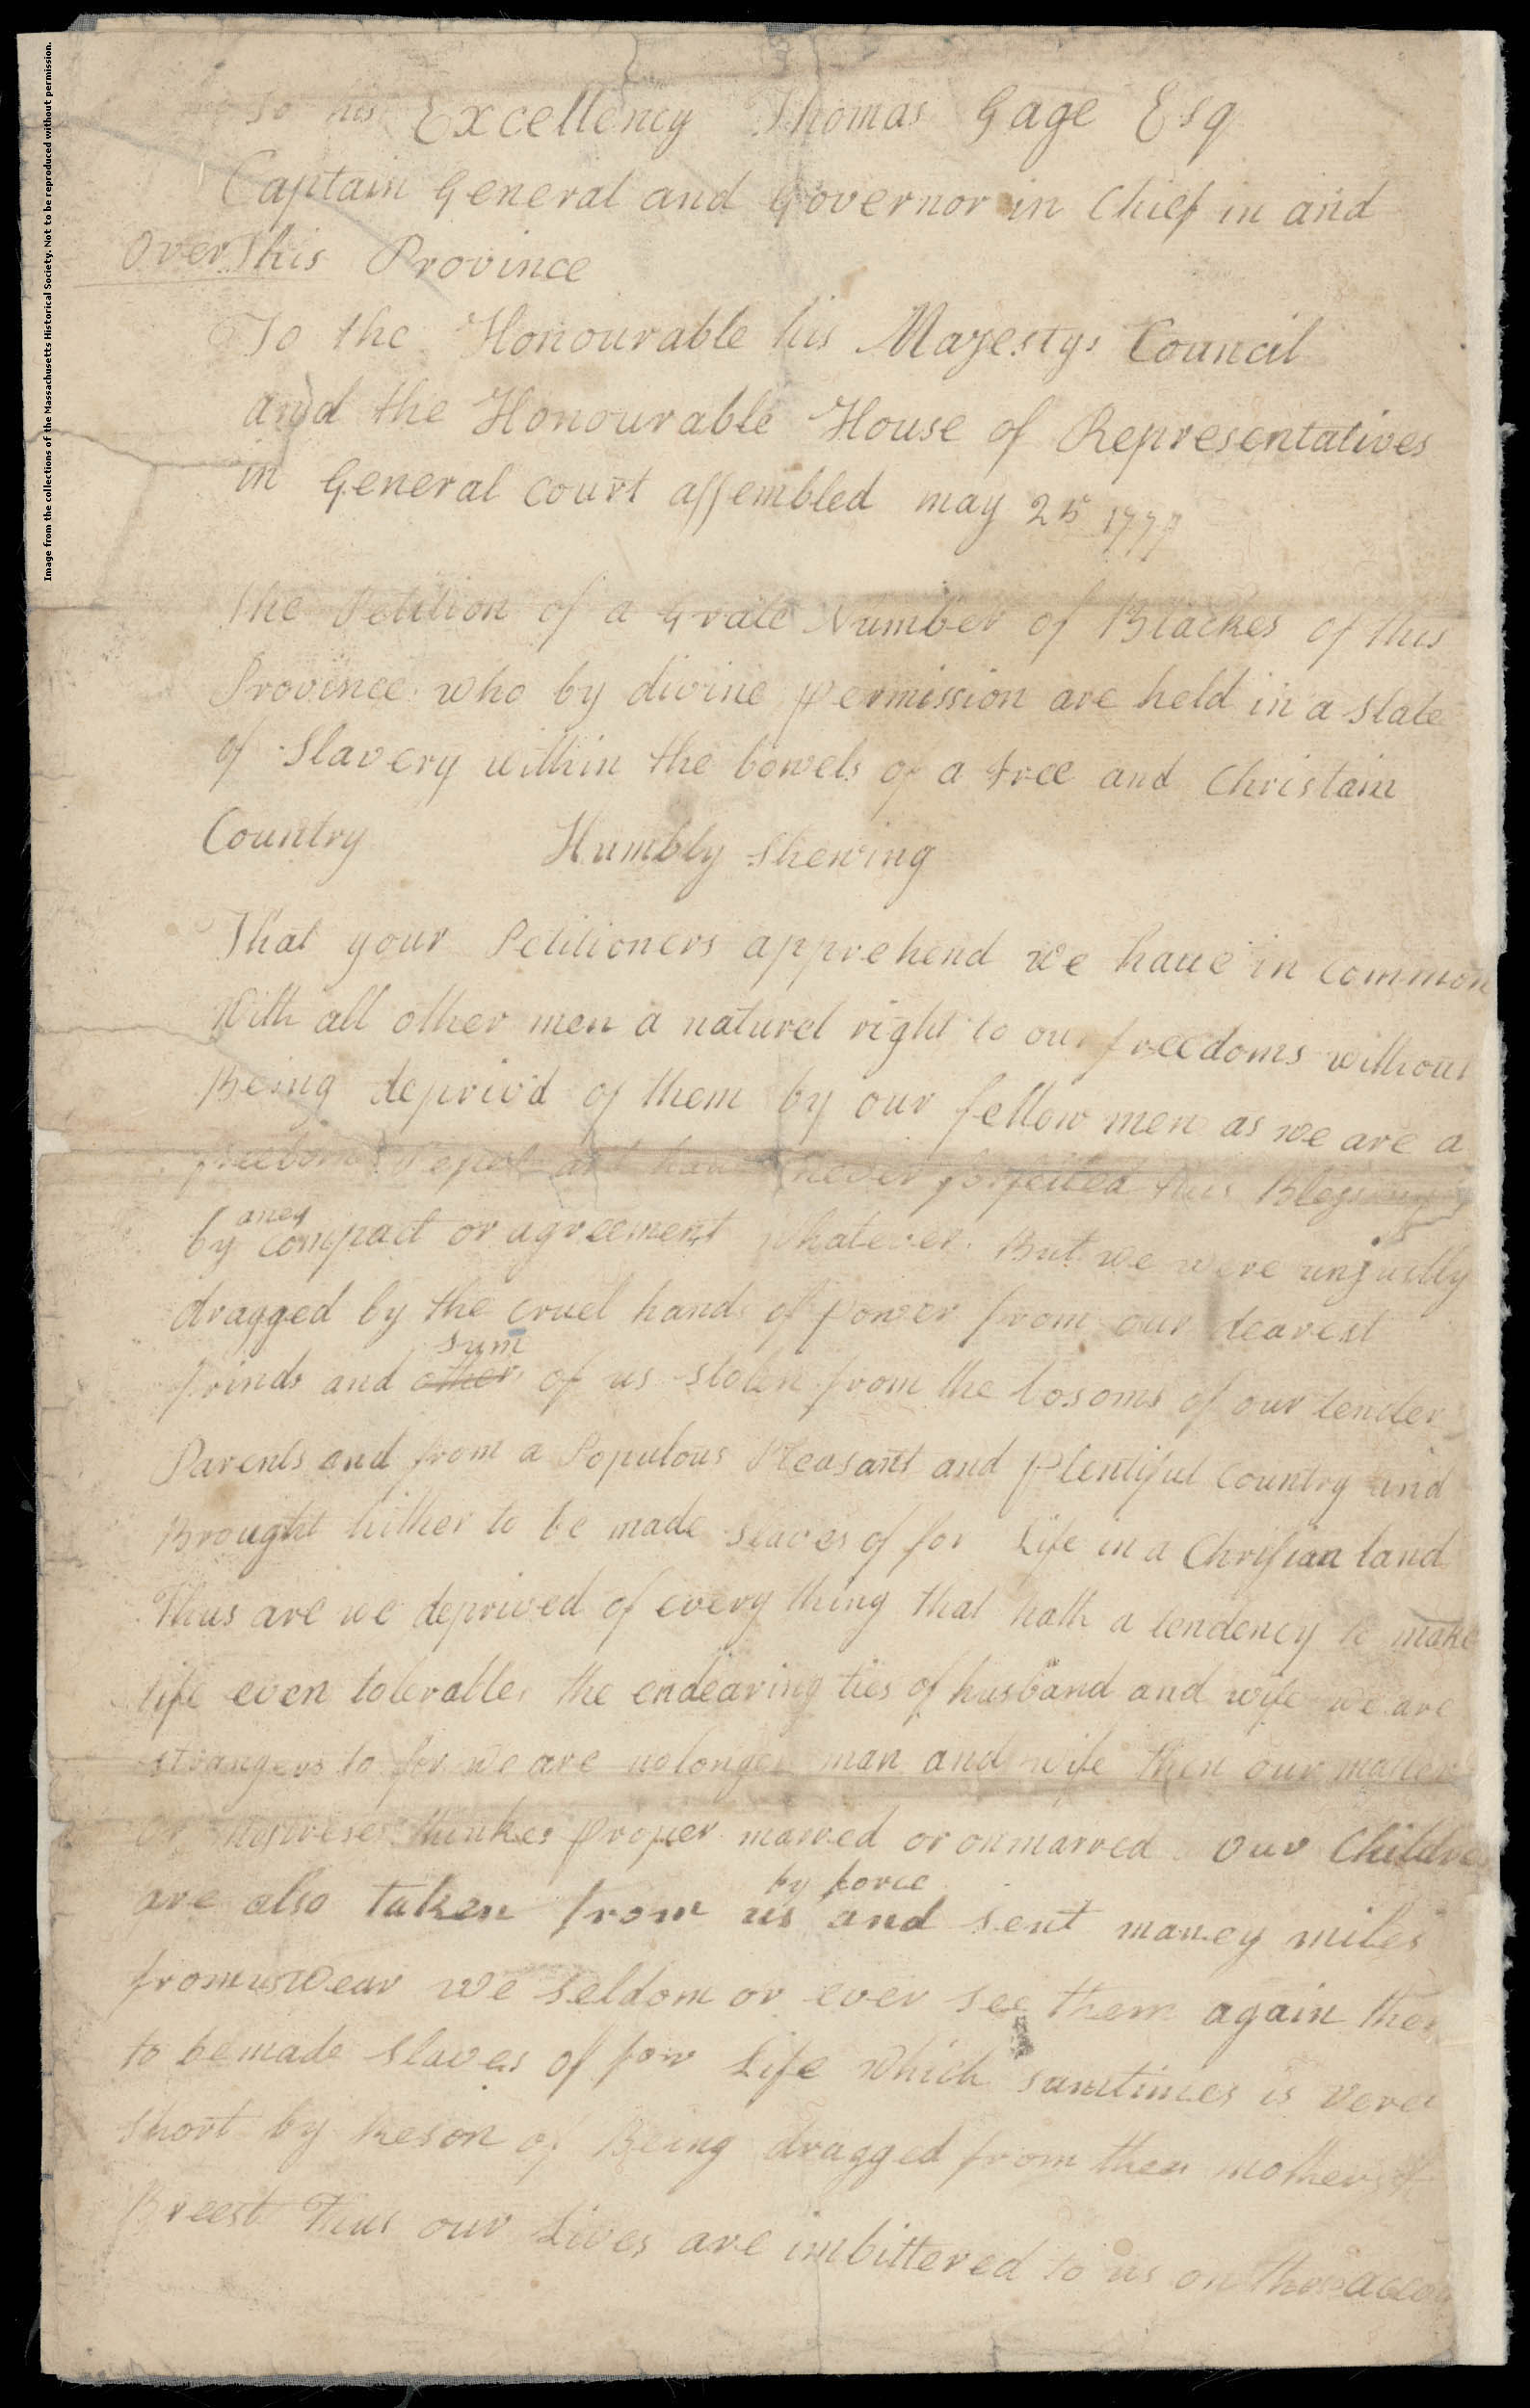 Image from the collections of the Massachusetts Historical Society. Not to be reproduced without permission.
To his Excellency Thomas Gage Esq
Captain General and Governor in Chief in and
Over This Province
To the Honourable his Majestys Council
and the Honourable House of Representatives
in General court assembled may 25 1777
The Petition of a Grate Number of Blackes of this
Province who by divine permission are held in a state
of Slavery within the bowels of a free and Christain
Country Humbly Shewing
That your Petitioners apprehend we haue in common
With all other men a naturel right to our freedoms without
Being depriv'd of them by our fellow men as we are a
freeborn Pepel and haue never forfeited this Blessing
by aney compact or agreement whatever. But we were unjustly
dragged by the cruel hand of power from our dearest
frinds and sum of us stolen from the bosoms of our tender
Parents and from a Populous Pleasant and plentiful country and
Brought hither to be made slaves of for Life in a Chrisian land
Thus are we deprived of every thing that hath a tendency to make
life even tolerable, the endearing ties of husband and wife we are
strangers to for we are no longer man and wife then our masters
or mestreses thinkes proper marred or onmarred Our Children
are also taken from us by force and sent maney miles
from us wear we seldom or ever see them again
to be made slaves of for Life which sumtimes is vere
short by Reson of Being dragged from their mothers
Breest Thus our Lives are imbittered to us on these